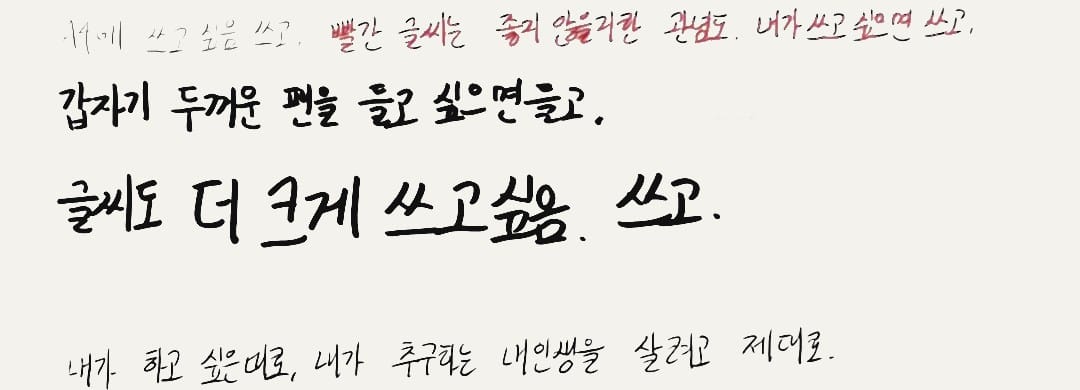 쓰고 싶음 쓰고. 빨간 글씨는 좋지 않을리란 관념도. 내가 쓰고 싶으면 쓰고.
갑자기 두꺼운 펜을 들고 싶으면 들고.
글씨도 더 크게 쓰고 싶음. 쓰고.
내가 하고 싶은대로, 내가 추구하는 내인생을 살려고 제대로.